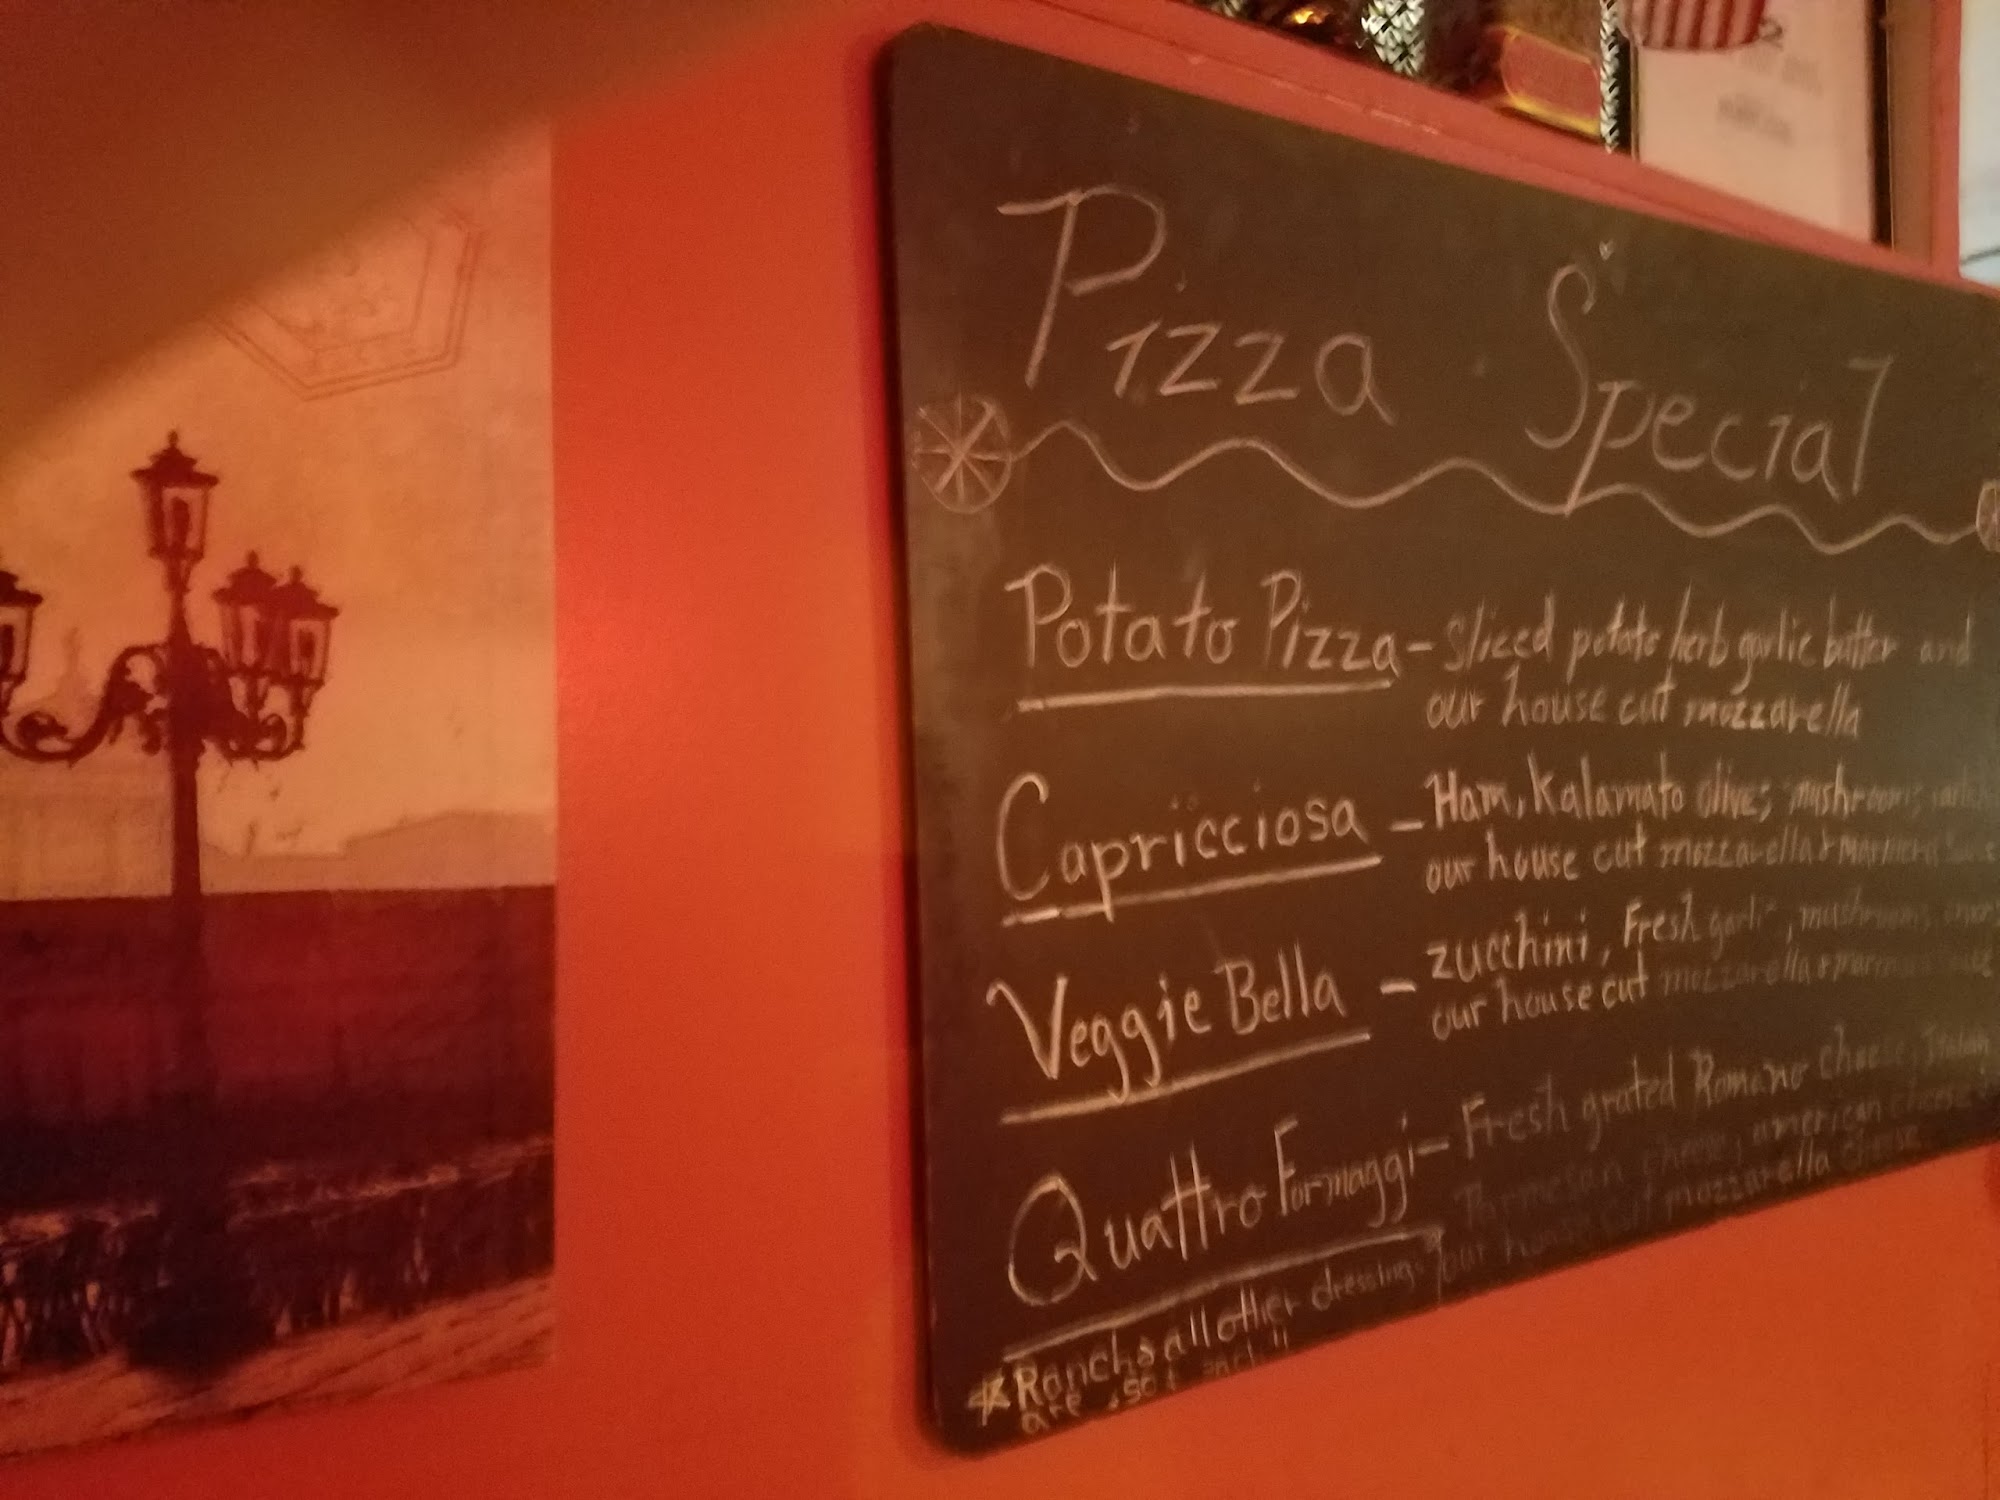 Pizza Special
Potato Pizza - Sliced potato herb garlic butter and
our house cut mozzarella
Capricciosa - Ham, Kalamato olives, mushrooms,
our house cut mozzarella & marinera Sauce
Veggie Bella - zucchini, Fresh garlic, mushrooms,
our house cut mozzarella & marinera sauce
Quattro Formaggi - Fresh grated Romano cheese, Italian
Parmesan cheese, american cheese
our house cut mozzarella cheese
* Ranch & all other dressings
are .50¢ each!!